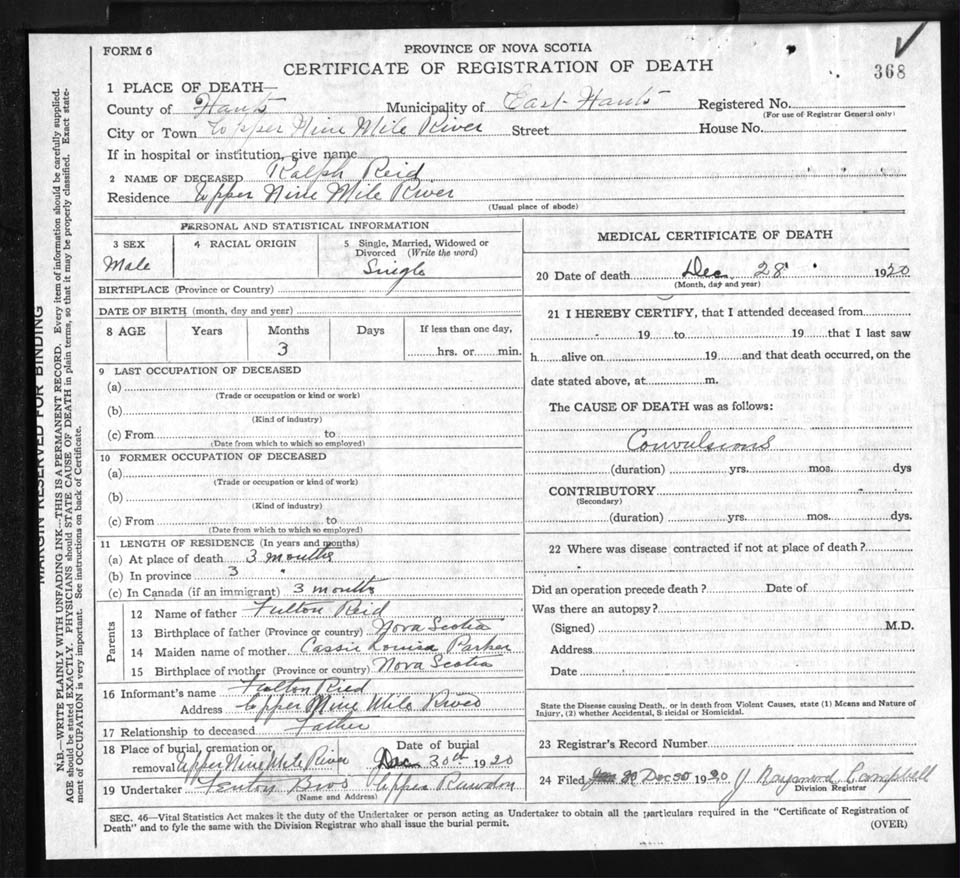 FORM 6
PROVINCE OF NOVA SCOTIA
CERTIFICATE OF REGISTRATION OF DEATH
368
1 PLACE OF DEATH
County of Hants Municipality of East Hants Registered No.
(For use of Registrar General only)
City or Town Upper Nine Mile River Street House No.
If in hospital or institution, give name
2 NAME OF DECEASED Ralph Reid
Residence Upper Nine Mile River
(Usual place of abode)
PERSONAL AND STATISTICAL INFORMATION
3 SEX 4 RACIAL ORIGIN 5 Single, Married, Widowed or Divorced (Write the word)
Male Single
BIRTHPLACE (Province or Country)
DATE OF BIRTH (month, day and year)
8 AGE Years Months Days If less than one day,
3 hrs. or min.
9 LAST OCCUPATION OF DECEASED
(a)
(Trade or occupation or kind or work)
(b)
(Kind of industry)
(c) From to
(Date from which to which so employed)
10 FORMER OCCUPATION OF DECEASED
(a)
(Trade or occupation or kind of work)
(b)
(Kind of industry)
(c) From to
(Date from which to which so employed)
11 LENGTH OF RESIDENCE (In years and months)
(a) At place of death 3 months
(b) In province 3 "
(c) In Canada (if an immigrant) 3 months
Parents
12 Name of father Fulton Reid
13 Birthplace of father (Province or country) Nova Scotia
14 Maiden name of mother Cassie Louisa Parker
15 Birthplace of mother (Province or country) Nova Scotia
16 Informant's name Fulton Ried
Address Upper Nine Mile River
17 Relationship to deceased Father
18 Place of burial, cremation or Date of burial
removal Upper Nine Mile River Dec 30th 1920
19 Undertaker Fenton Bros Upper Rawdon
(Name and Address)
MEDICAL CERTIFICATE OF DEATH
20 Date of death Dec. 28 1920
(Month, day and year)
21 I HEREBY CERTIFY, that I attended deceased from
19 to 19 that I last saw
h alive on 19 and that death occurred, on the
date stated above, at m.
The CAUSE OF DEATH was as follows:
Convulsions
(duration) yrs. mos. dys
CONTRIBUTORY
(Secondary)
(duration) yrs. mos. dys.
22 Where was disease contracted if not at place of death?
Did an operation precede death? Date of
Was there an autopsy?
(Signed) M.D.
Address
Date
State the Disease causing Death, or in death from Violent Causes, state (1) Means and Nature of
Injury, (2) whether Accidental, Suicidal or Homicidal.
23 Registrar's Record Number
24 Filed Dec 30 1920 J Raymond Campbell
Division Registrar
SEC. 46—Vital Statistics Act makes it the duty of the Undertaker or person acting as Undertaker to obtain all the particulars required in the "Certificate of Registration of
Death" and to fyle the same with the Division Registrar who shall issue the burial permit.
(OVER)
MARGIN RESERVED FOR BINDING
N.B.—WRITE PLAINLY WITH UNFADING INK—THIS IS A PERMANENT RECORD. Every item of information should be carefully supplied.
AGE should be stated EXACTLY. PHYSICIANS should STATE CAUSE OF DEATH in plain terms, so that it may be properly classified. Exact state-
ment of OCCUPATION is very important. See instructions on back of Certificate.